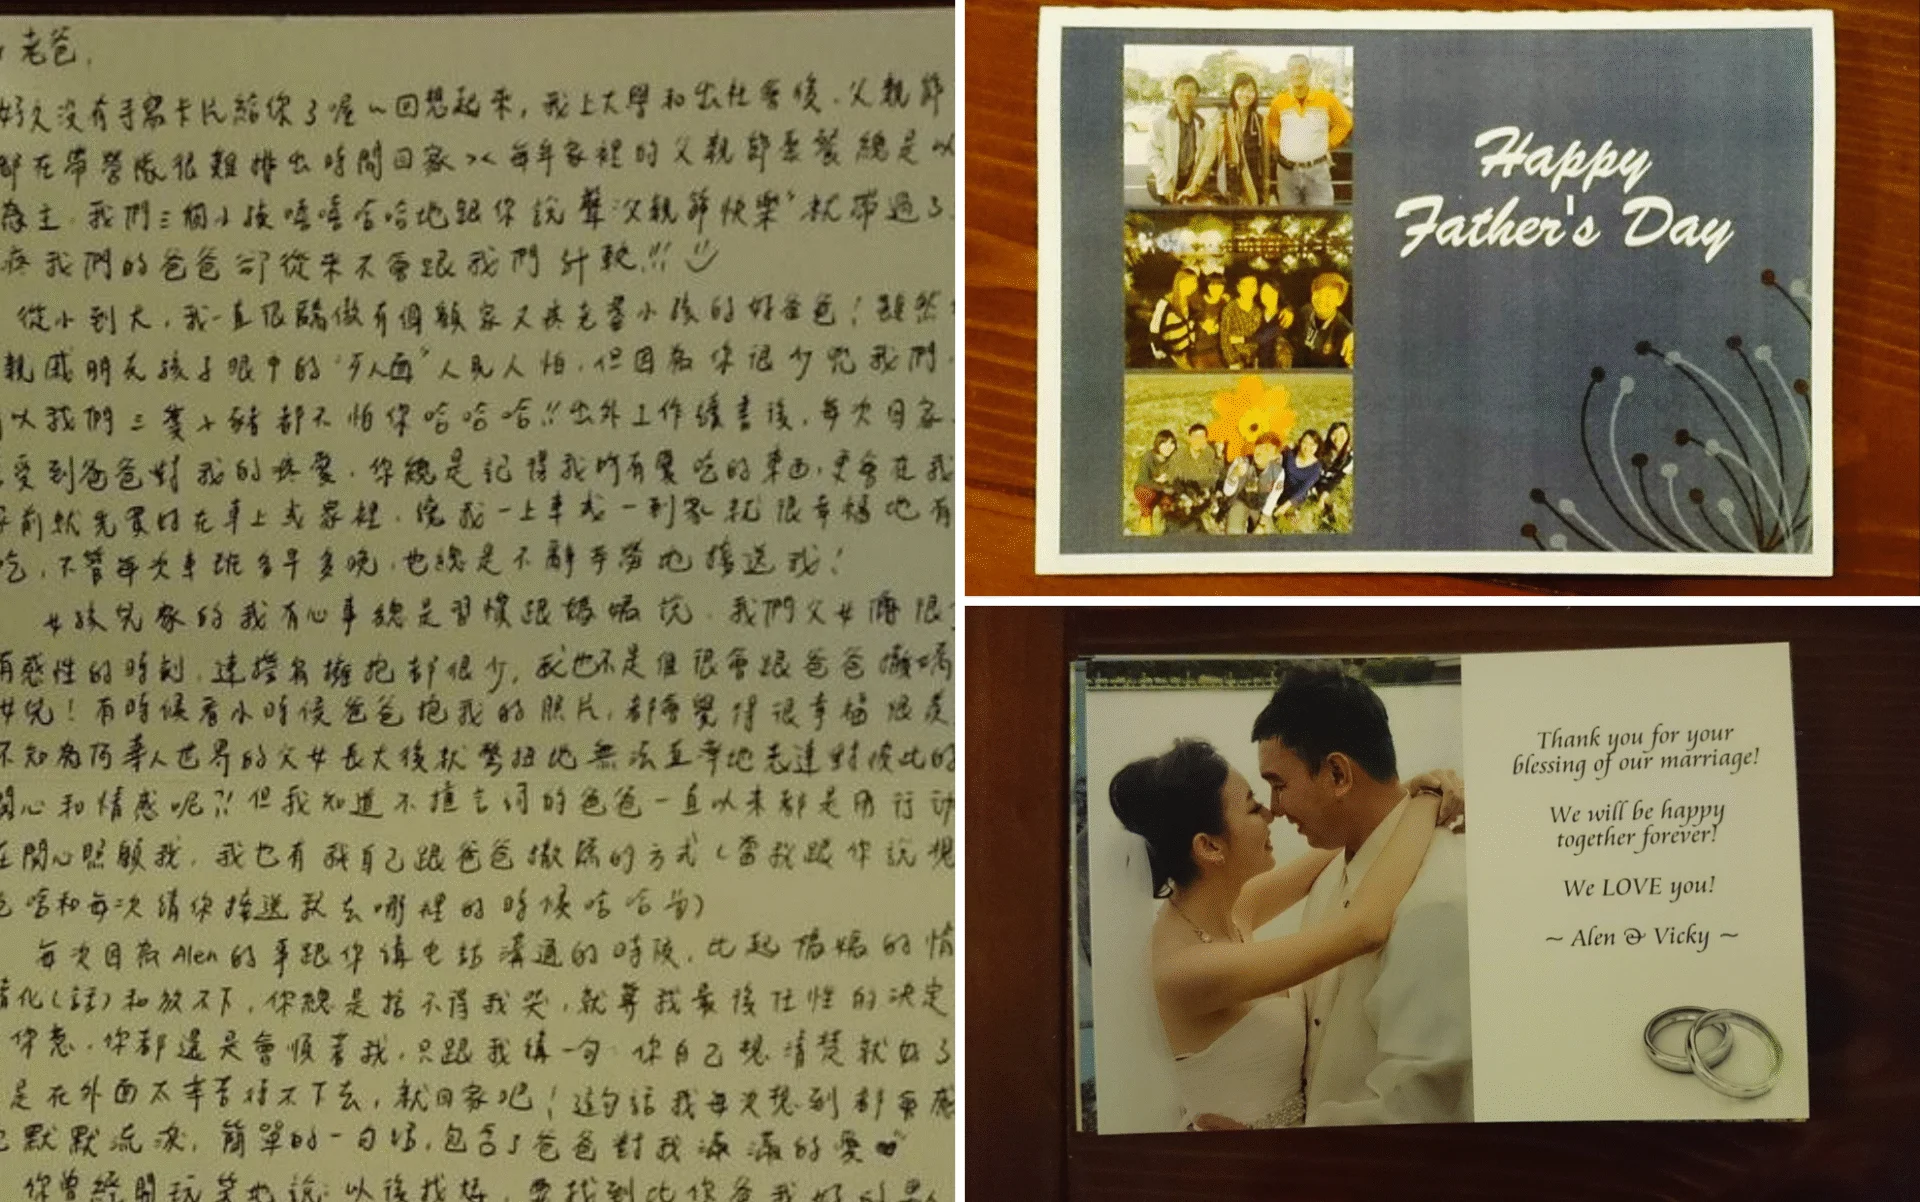 老爸,
好久沒有手寫卡片給你了喔~回想起來,我上大學和出社會後,父親節
都在帶營隊很難排出時間回家>< 每年家裡的父親節聚餐總是以
為主,我們三個小孩嘻嘻哈哈地跟你說聲"父親節快樂"就帶過了
疼我們的爸爸卻從來不會跟我們計較!!
從小到大,我一直很驕傲有個顧家又疼老婆小孩的好爸爸!雖然
親戚朋友孩子眼中的"歹人面"人見人怕,但因為你很少兇我們,
以我們三隻小豬都不怕你哈哈哈!!出外工作讀書後,每次回家
受到爸爸對我的疼愛,你總是記得我所有愛吃的東西,更會在我
前就先買好在車上或家裡,讓我一上車或一到家就很幸福地有
吃,不管每次車班多早多晚,也總是不辭辛勞地接送我!
女孩兒家的我有心事總是習慣跟媽媽說,我們父女倆很
有感性的時刻,連搭肩擁抱都很少,我也不是個很會跟爸爸撒嬌
女兒!有時候看小時候爸爸抱我的照片,都會覺得很幸福很
不知為何華人世界的父女長大後就彆扭地無法直率地表達對彼此的
關心和情感呢?!但我知道不擅言詞的爸爸一直以來都是用行動
在關心照顧我,我也有我自己跟爸爸撒嬌的方式(當我跟你說想
吃啥和每次請你接送我去哪裡的時候哈哈)
每次因為Alen的事跟你講電話溝通的時候,比起媽媽的情
緒化(註)和放不下,你總是捨不得我哭,就算我最後任性的決定
你意,你都還是會順著我,只跟我講一句:你自己想清楚就好了
是在外面太辛苦待不下去,就回家吧!這句話我每次想到都
默默流淚,簡單的一句話,包含了爸爸對我滿滿的愛
你曾經開玩笑地說:以後找
Happy
Father's Day
Thank you for your
blessing of our marriage!
We will be happy
together forever!
We LOVE you!
~ Alen & Vicky ~